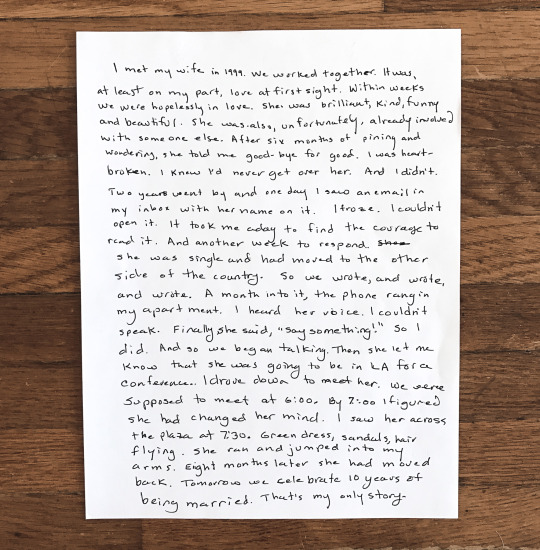 I met my wife in 1999. We worked together. It was,
at least on my part, love at first sight. Within weeks
we were hopelessly in love. She was brilliant, kind, funny
and beautiful. She was also, unfortunately, already involved
with someone else. After six months of pining and
wondering, she told me good-bye for good. I was heart-
broken. I knew I'd never get over her. And I didn't.
Two years went by and one day I saw an email in
my inbox with her name on it. I froze. I couldn't
open it. It took me a day to find the courage to
read it. And another week to respond. She
she was single and had moved to the other
side of the country. So we wrote, and wrote,
and wrote. A month into it, the phone rang in
my apartment. I heard her voice. I couldn't
speak. Finally she said, "say something!" So I
did. And so we began talking. Then she let me
know that she was going to be in LA for a
conference. I drove down to meet her. We were
supposed to meet at 6:00. By 7:00 I figured
she had changed her mind. I saw her across
the plaza at 7:30. Green dress, sandals, hair
flying. She ran and jumped into my
arms. Eight months later she had moved
back. Tomorrow we celebrate 10 years of
being married. That's my only story.